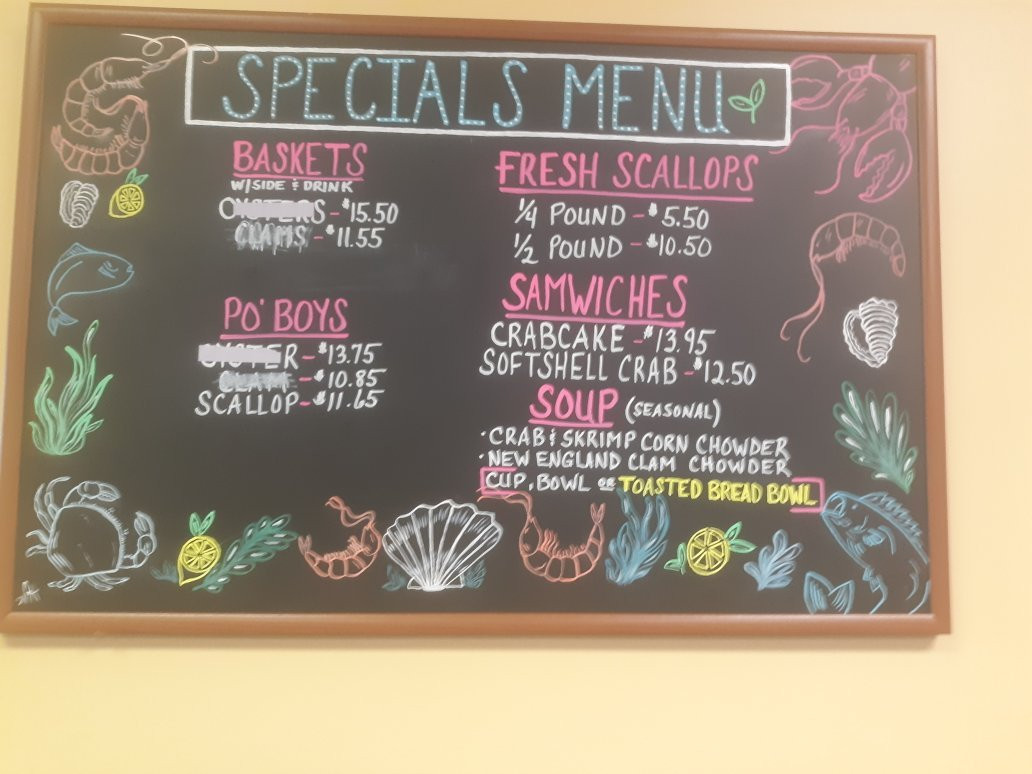 SPECIALS MENU
BASKETS
W/SIDE & DRINK
OYSTERS - $15.50
CLAMS - $11.55
PO' BOYS
OYSTER - $13.75
CLAM - $10.85
SCALLOP - $11.65
FRESH SCALLOPS
1/4 POUND - $5.50
1/2 POUND - $10.50
SAMWICHES
CRABCAKE - $13.95
SOFTSHELL CRAB - $12.50
SOUP (SEASONAL)
· CRAB & SKRIMP CORN CHOWDER
· NEW ENGLAND CLAM CHOWDER
CUP, BOWL OR TOASTED BREAD BOWL